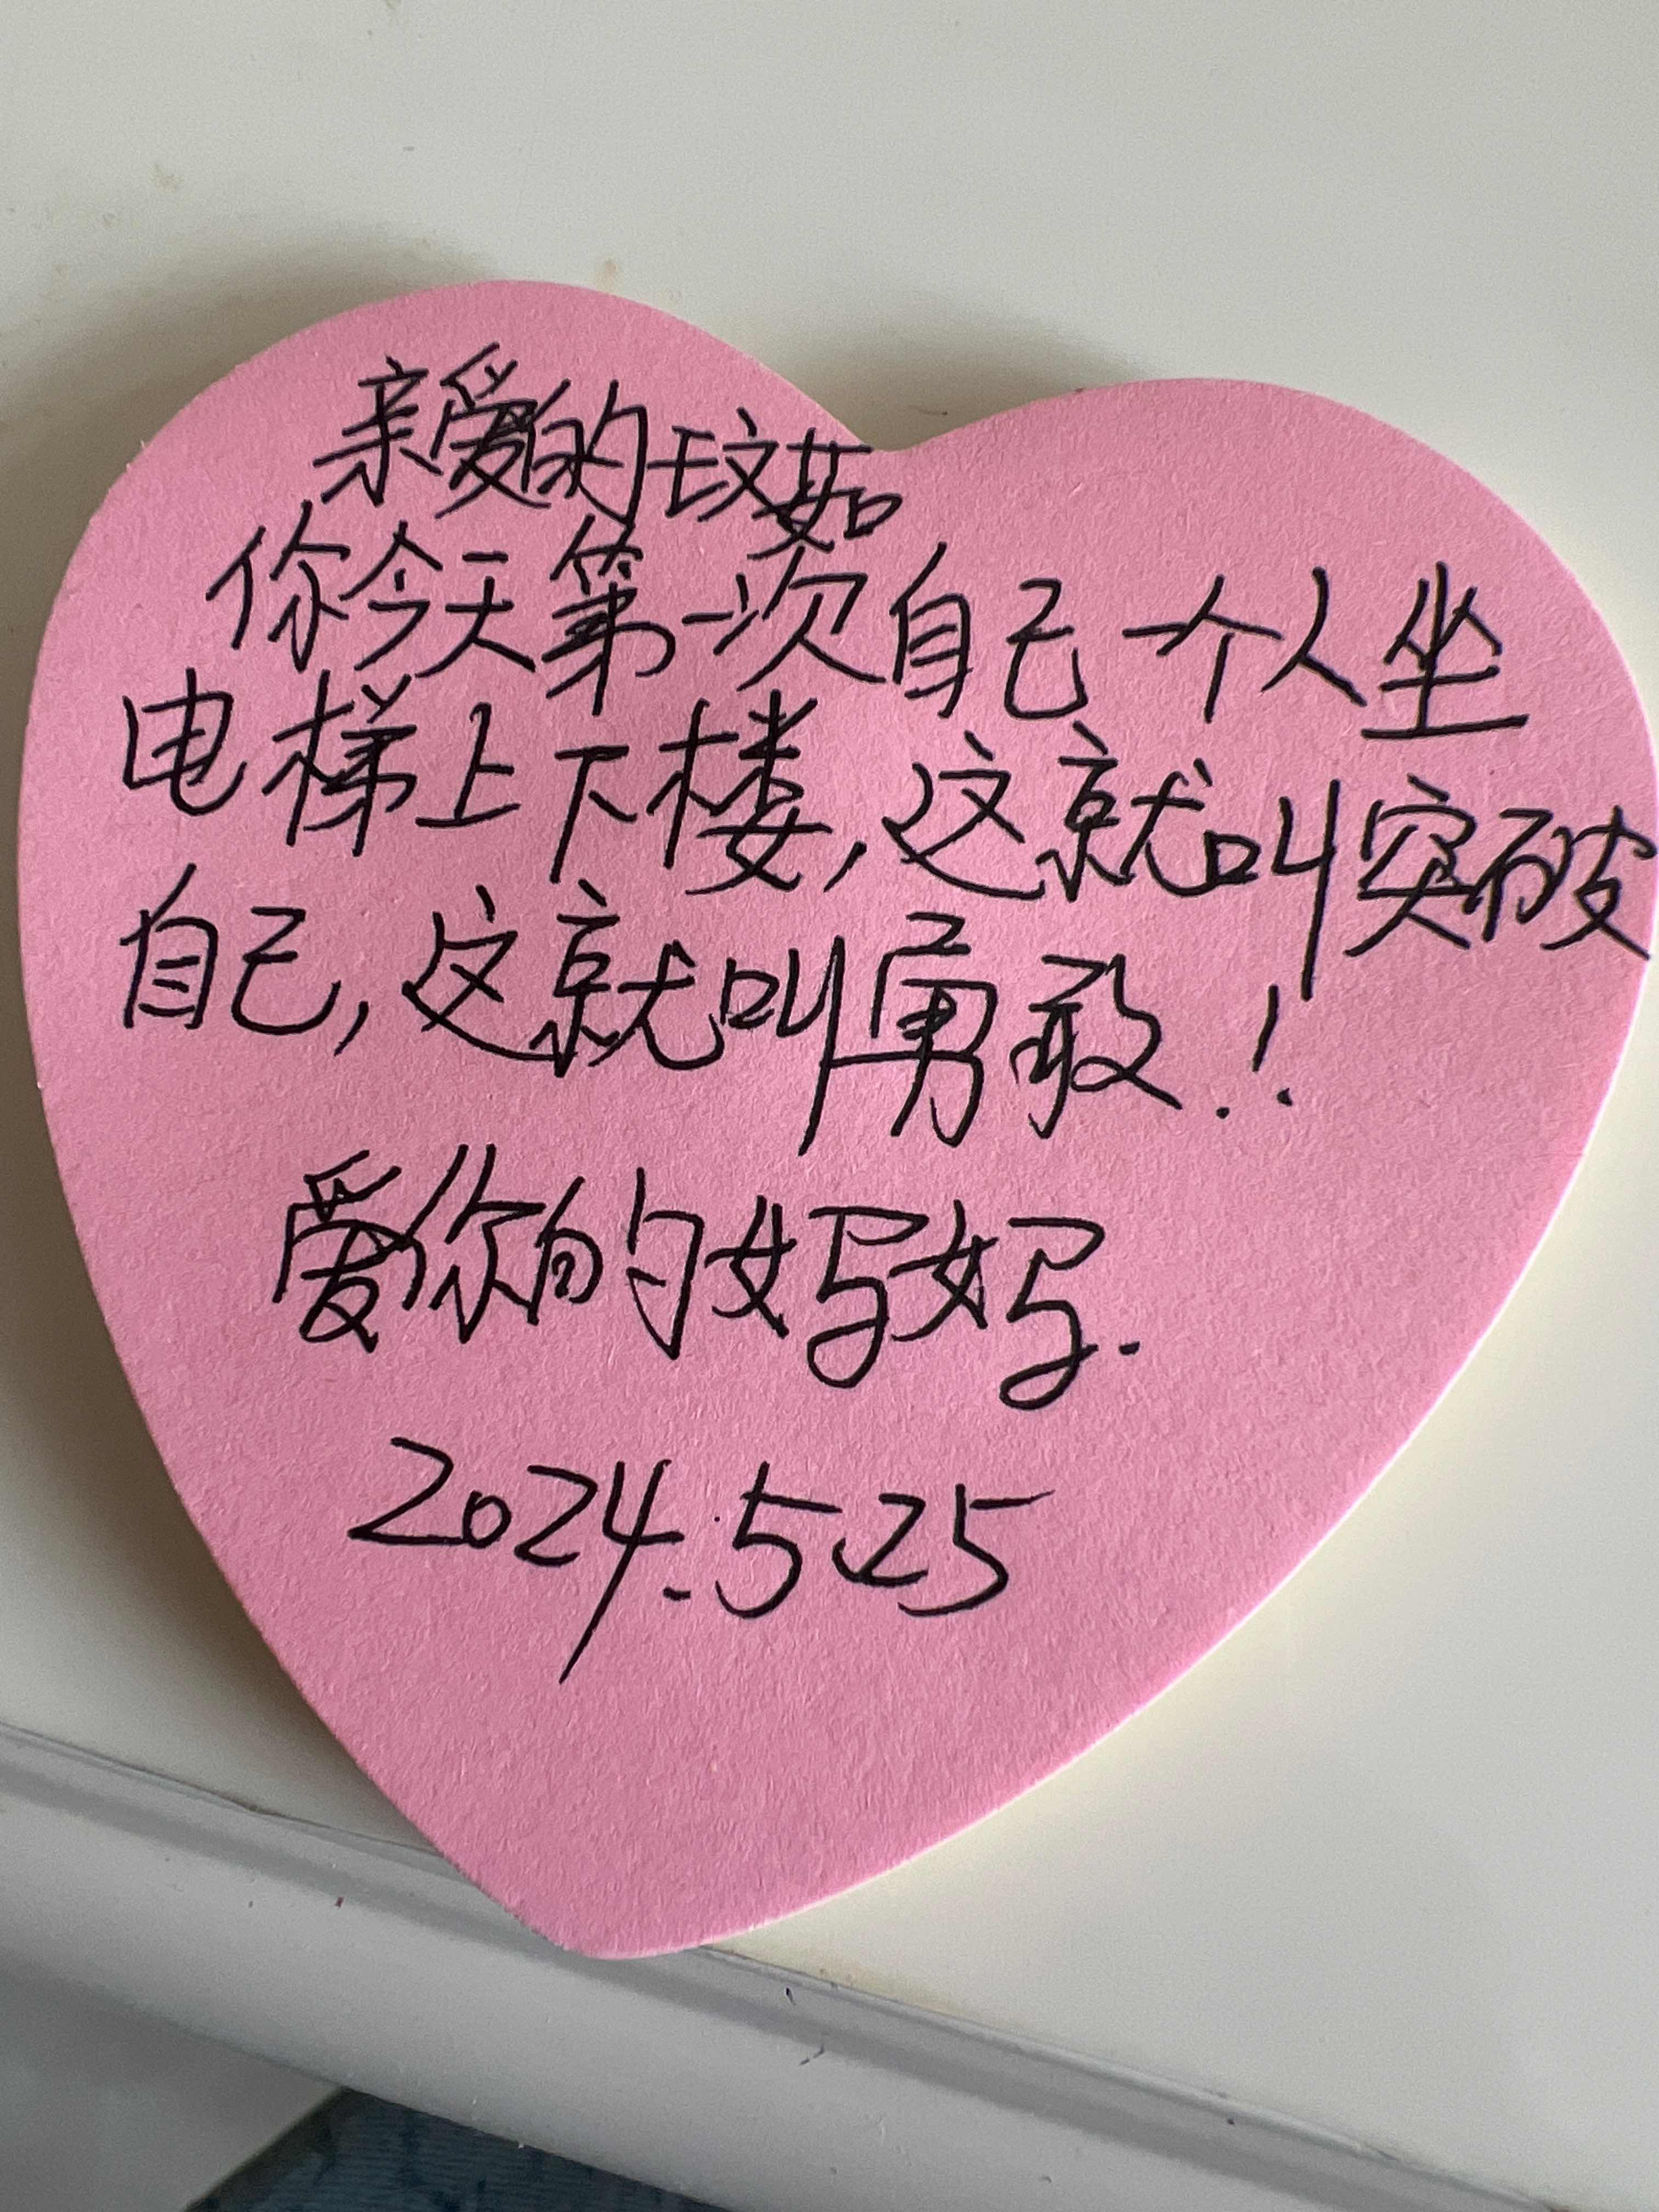 亲爱的玟茹
你今天第一次自己一个人坐
电梯上下楼,这就叫突破
自己,这就叫勇敢.!
爱你的妈妈.
2024.5.25